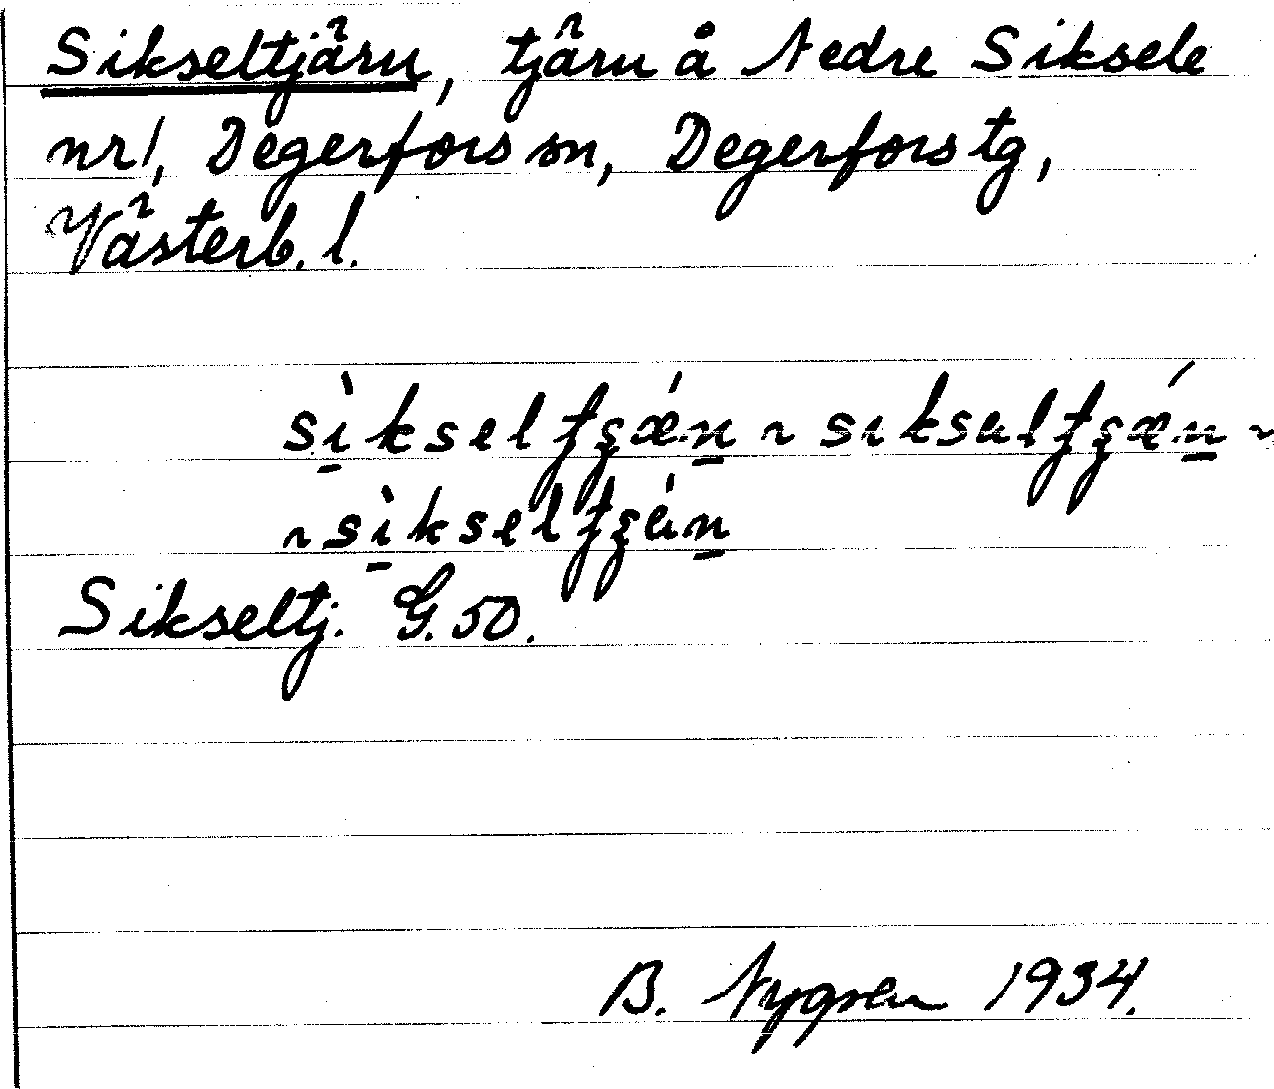 Sikseltjärn, tjärn å Nedre Siksele
nr 1, Degerfors sn, Degerfors tg,
Västerb. l.
sìkseltʂǽn ~ siksaltʂǽn ~
~ sìkseltʂén
Sikseltj. G. 50.
B. Nygren 1934.